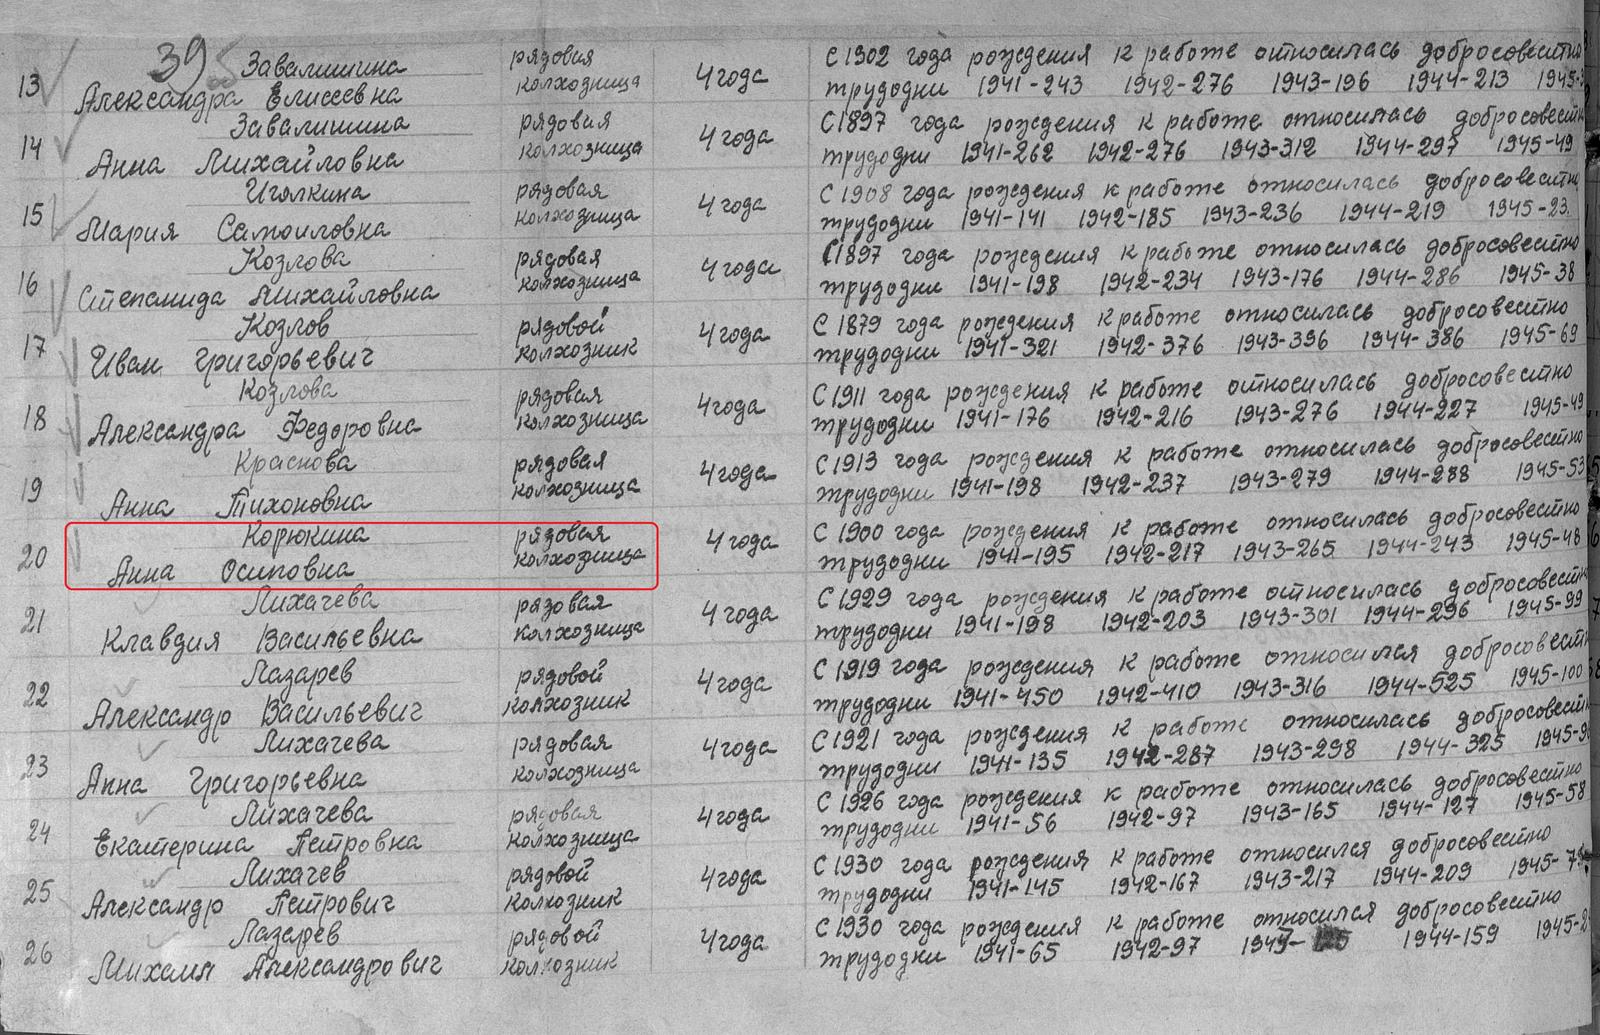 39
Завалишина рядовая С 1902 года рождения к работе относилась добросовестно
13 Александра Елисеевна колхозница 4 года трудодни 1941-243 1942-276 1943-196 1944-213 1945-
Завалишина рядовая С 1897 года рождения к работе относилась добросовестн
14 Анна Михайловна колхозница 4 года трудодни 1941-262 1942-276 1943-312 1944-297 1945-49
Иголкина рядовая С 1908 года рождения к работе относилась добросовестн
15 Мария Самоиловна колхозница 4 года трудодни 1941-141 1942-185 1943-236 1944-219 1945-23
Козлова рядовая С 1897 года рождения к работе относилась добросовестно
16 Степанида Михайловна колхозница 4 года трудодни 1941-198 1942-234 1943-176 1944-286 1945-38
Козлов рядовой С 1879 года рождения к работе относилась добросовестно
17 Иван Григорьевич колхозник 4 года трудодни 1941-321 1942-376 1943-396 1944-386 1945-69
Козлова рядовая С 1911 года рождения к работе относилась добросовестно
18 Александра Федоровна колхозница 4 года трудодни 1941-176 1942-216 1943-276 1944-227 1945-49
Краснова рядовая С 1913 года рождения к работе относилась добросовестно
19 Анна Тихоновна колхозница 4 года трудодни 1941-198 1942-237 1943-279 1944-288 1945-53
Корюкина рядовая С 1900 года рождения к работе относилась добросовестно
20 Анна Осиповна колхозница 4 года трудодни 1941-195 1942-217 1943-265 1944-243 1945-48
Лихачева рязовая С 1929 года рождения к работе относилась добросовестн
21 Клавдия Васильевна колхозница 4 года трудодни 1941-198 1942-203 1943-301 1944-296 1945-99
Лазарев рядовой С 1919 года рождения к работе относился добросовестн
22 Александр Васильевич колхозник 4 года трудодни 1941-450 1942-410 1943-316 1944-525 1945-100
Лихачева рядовая С 1921 года рождения к работе относилась добросовестн
23 Анна Григорьевна колхозница 4 года трудодни 1941-135 1942-287 1943-298 1944-325 1945-9
Лихачева рядовая С 1926 года рождения к работе относилась добросовестно
24 Екатерина Петровна колхозница 4 года трудодни 1941-56 1942-97 1943-165 1944-127 1945-58
Лихачев рядовой С 1930 года рождения к работе относился добросовестно
25 Александр Петрович колхозник 4 года трудодни 1941-145 1942-167 1943-217 1944-209 1945-7
Лазарев рядовой С 1930 года рождения к работе относился добросовестно
26 Михаил Александрович колхозник 4 года трудодни 1941-65 1942-97 1944-159 1945-2